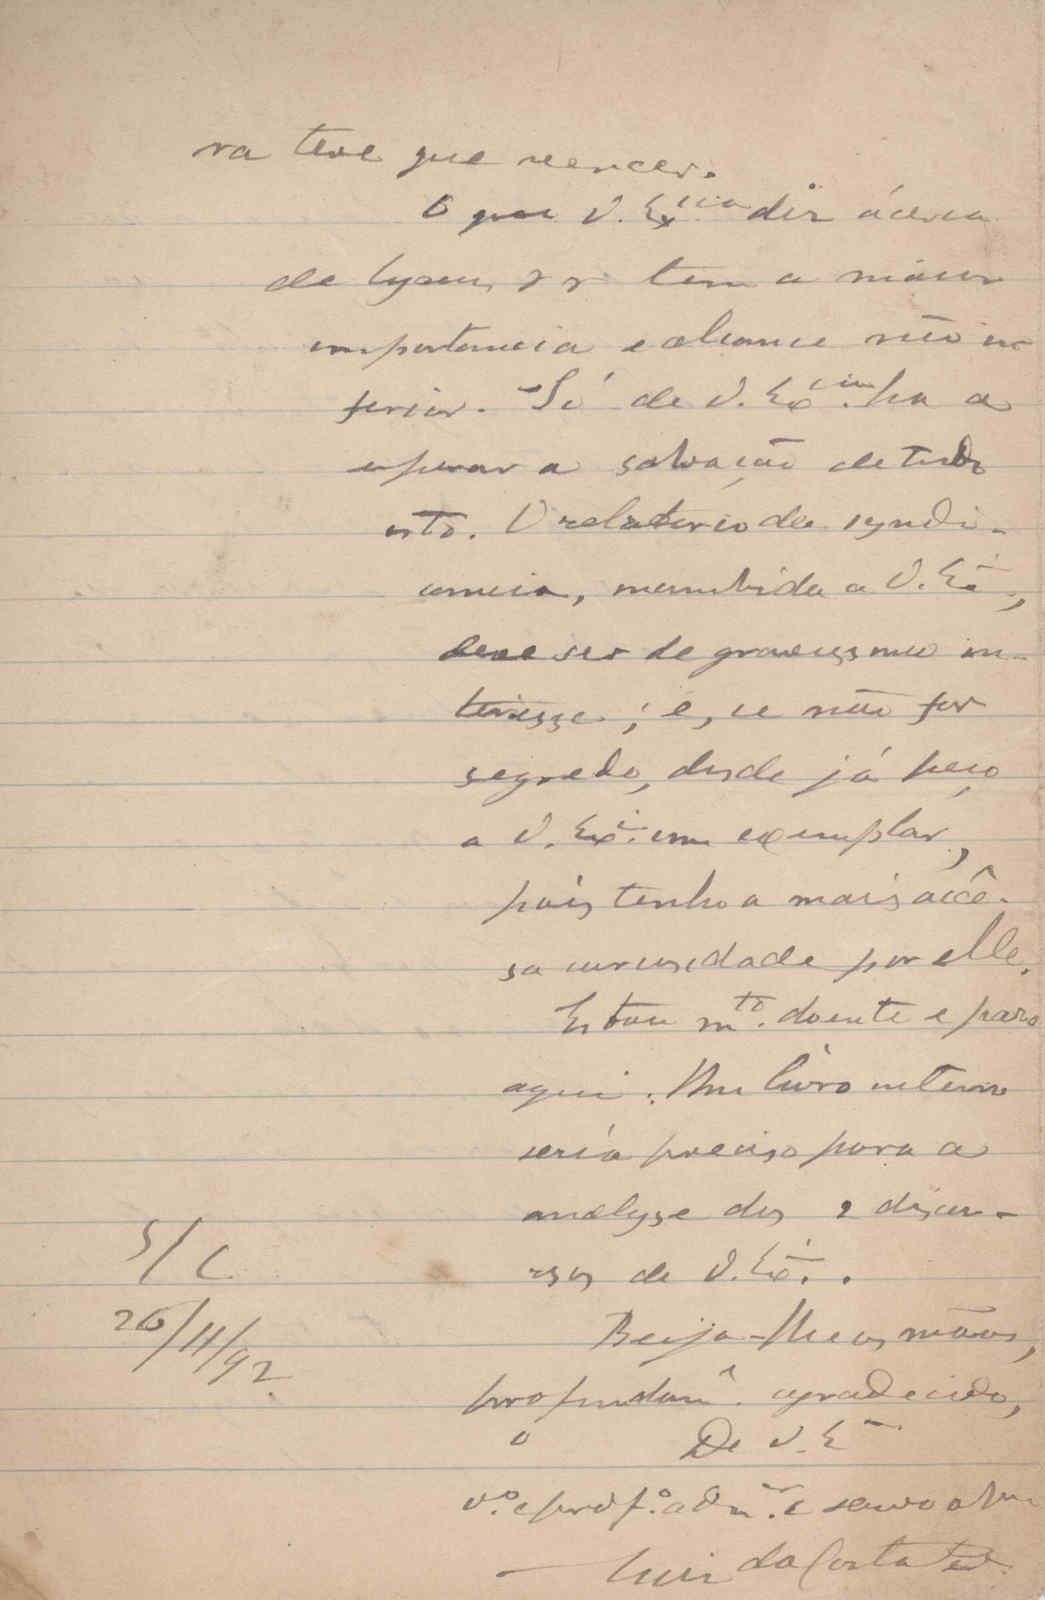 ra teve que vencer.
O que V. Ex.cia diz ácerca
de lyceus, tem a maior
importancia e alcance não in-
ferior. – Só de V. Ex.cia ha a
esperar a salvação de tudo
isto. O relatorio da syndi-
cancia, mettida a V. Ex.ª,
deve ser de gravissimo in-
teresse; e, se não for
segredo, desde já peço
a V. Ex.ª um exemplar,
pois tenho a mais accê-
sa curiosidade por elle.
Estou m.to doente e paro
aqui. Um livro inteiro
seria preciso para a
analyse dos 2 discur-
sos de V. Ex.ª.
Beija-lhe as mãos,
profundam.e agradecido,
o De V. E
v.or e prof.o adm.or e servo
Luiz da Costa
S/C
26/11/92